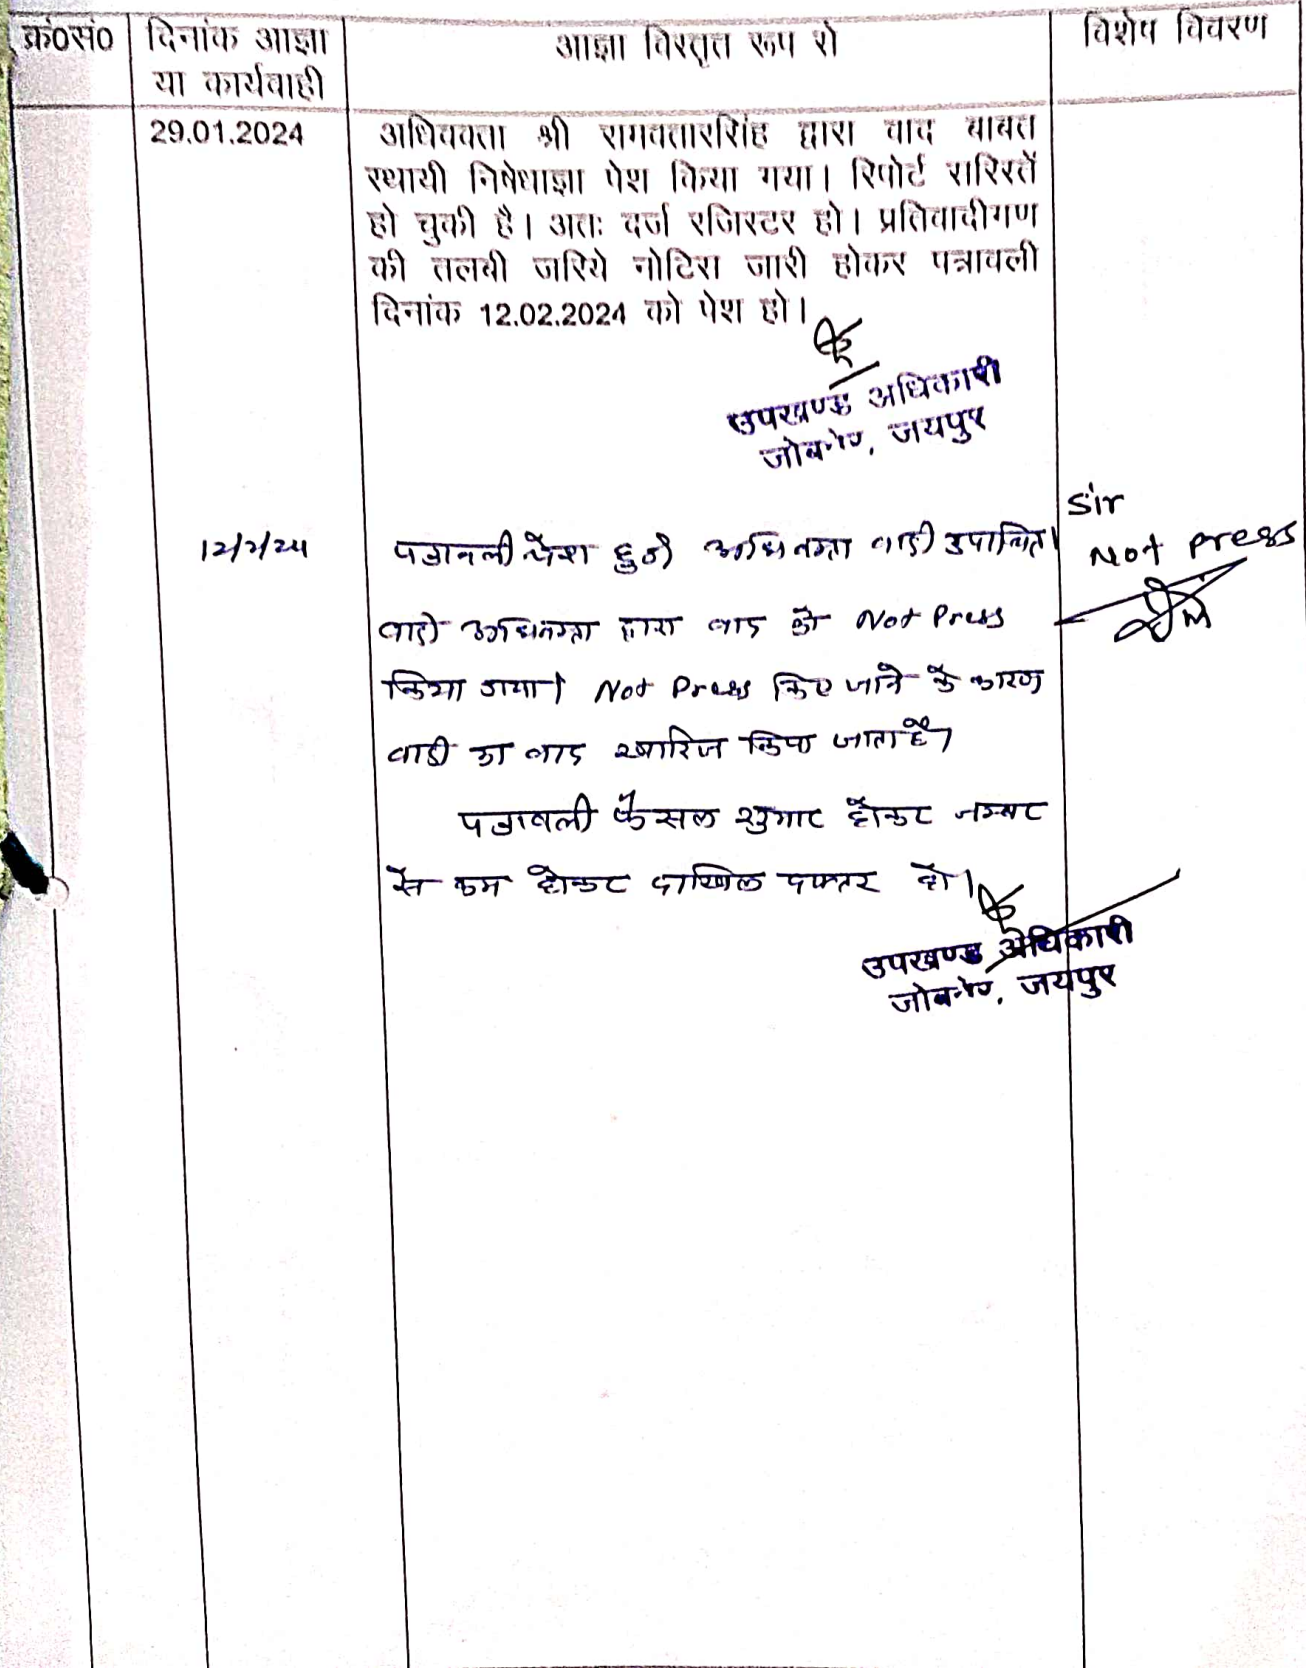 क्र०सं० दिनांक आज्ञा आज्ञा विस्तृत रूप से विशेष विवरण
या कार्यवाही
29.01.2024 अधिवक्ता श्री रामवतारसिंह द्वारा वाद बाबत
स्थायी निषेधाज्ञा पेश किया गया। रिपोर्ट सरिस्तें
हो चुकी है। अतः दर्ज रजिस्टर हो। प्रतिवादीगण
की तलबी जरिये नोटिस जारी होकर पत्रावली
दिनांक 12.02.2024 को पेश हो।
उपखण्ड अधिकारी
जोबनेर, जयपुर
12/2/24 पत्रावली पेश हुई। अधिवक्ता वादी उपस्थित।
वादी अधिवक्ता द्वारा वाद को Not Press
किया गया। Not Press किए जाने के कारण
वादी का वाद खारिज किया जाता है।
पत्रावली फैसल शुमार होकर नम्बर
से कम होकर दाखिल दफ्तर हो।
उपखण्ड अधिकारी
जोबनेर, जयपुर
Sir
Not Press